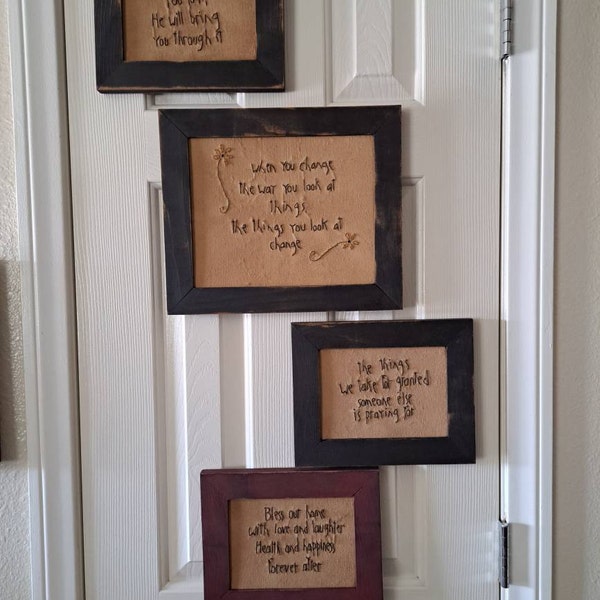 He will bring
You through it
when you change
the way you look at
things
the things you look at
change
the things
we take for granted
someone else
is praying for
Bless our home
with love and laughter
Health and happiness
forever after